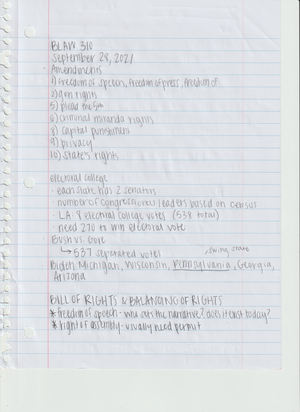 BLAW 310
September 28, 2021
Amendments
1) freedom of speech, freedom of press, freedom of
2) gun rights
5) plead the 5th
6) criminal miranda rights
8) capital punishment
9) privacy
10) state's rights
electoral college
- each state has 2 senators
number of congressional leaders based on census
- LA: 8 electoral college votes (538 total)
- need 270 to win electoral vote
Bush vs. Gore
↳ 537 separated votes
swing state
Biden: Michigan, Wisconsin, Pennsylvania, Georgia,
Arizona
BILL OF RIGHTS & BALANCING OF RIGHTS
* freedom of speech - who sets the narrative? does it exist today?
* right of assembly - usually need permit